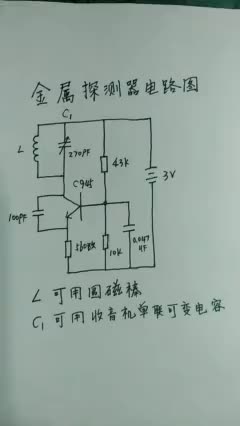 金属探测器电路图
C1
L
270PF
43K
3V
C945
100PF
560欧
10K
0.047
uF
L 可用圆磁棒
C1 可用收音机单联可变电容